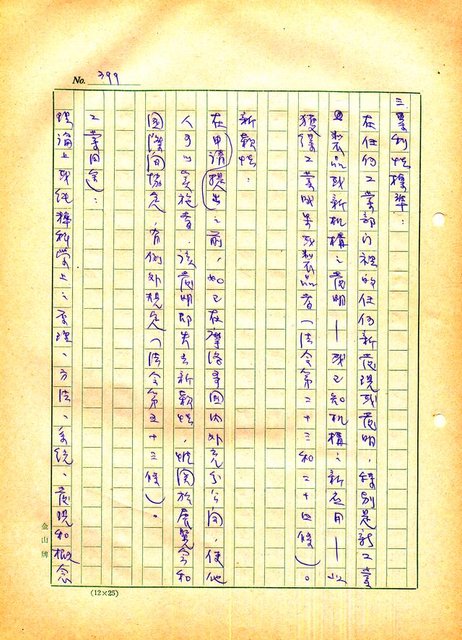 No. 399
三、專利性標準：
在任何工業部门裡的任何新發現或發明，特別是新工業
製品或新机構之發明——或已知机構之新应用——以
獲得工業成果或製品者（法令第二十三和二十四條）。
新穎性：
在申请提出之前，如已在摩洛哥国内外充分公问，使他
人可以实施者，该發明即失去新穎性，惟関於展覽会和
国際间協定，有例外規定（法令第五十三條）。
工業问会）：
理論上或純粹科學上之原理、方法、系統、發現和概念
金山牌
(12×25)